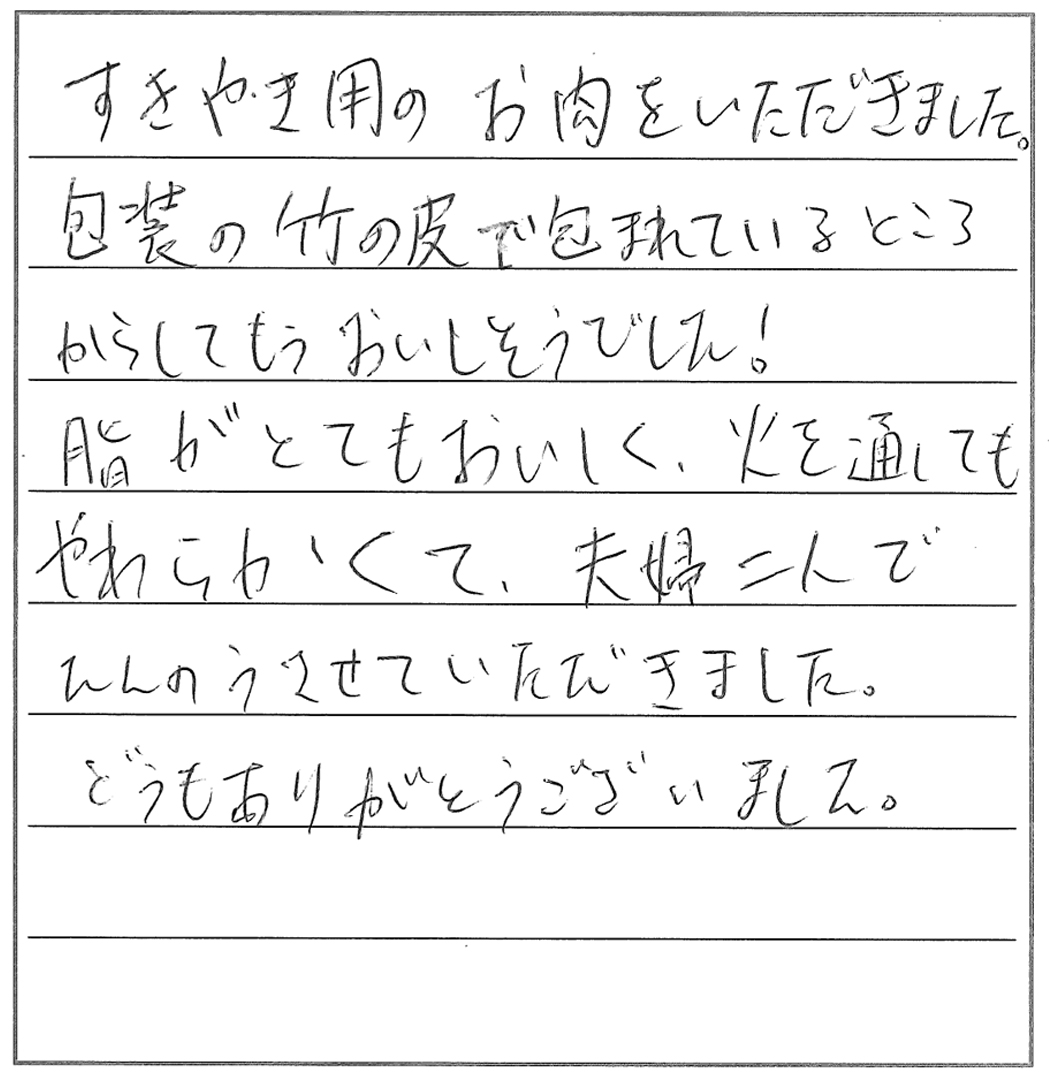 すきやき用のお肉をいただきました。
包装の竹の皮で包まれているところ
からしてもうおいしそうでした!
脂がとてもおいしく、火を通しても
やわらかくて、夫婦二人で
たんのうさせていただきました。
どうもありがとうございました。